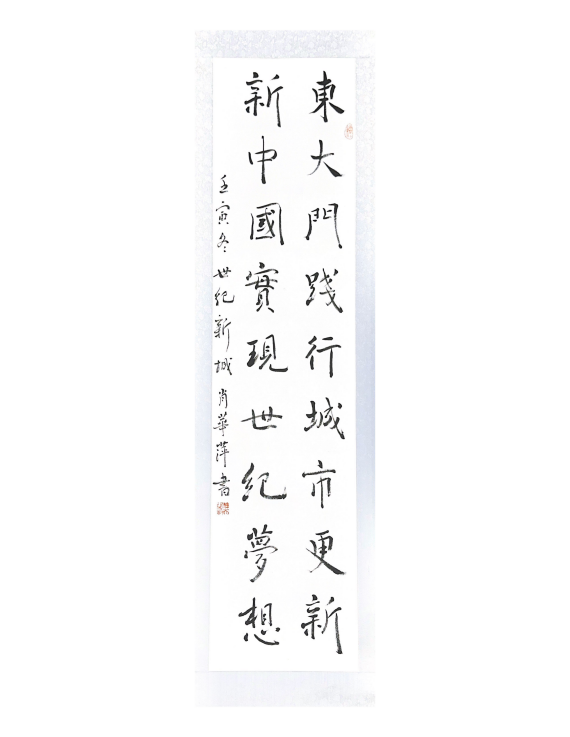 東大門踐行城市更新
新中國實現世紀夢想
壬寅冬世紀新城肖華萍書